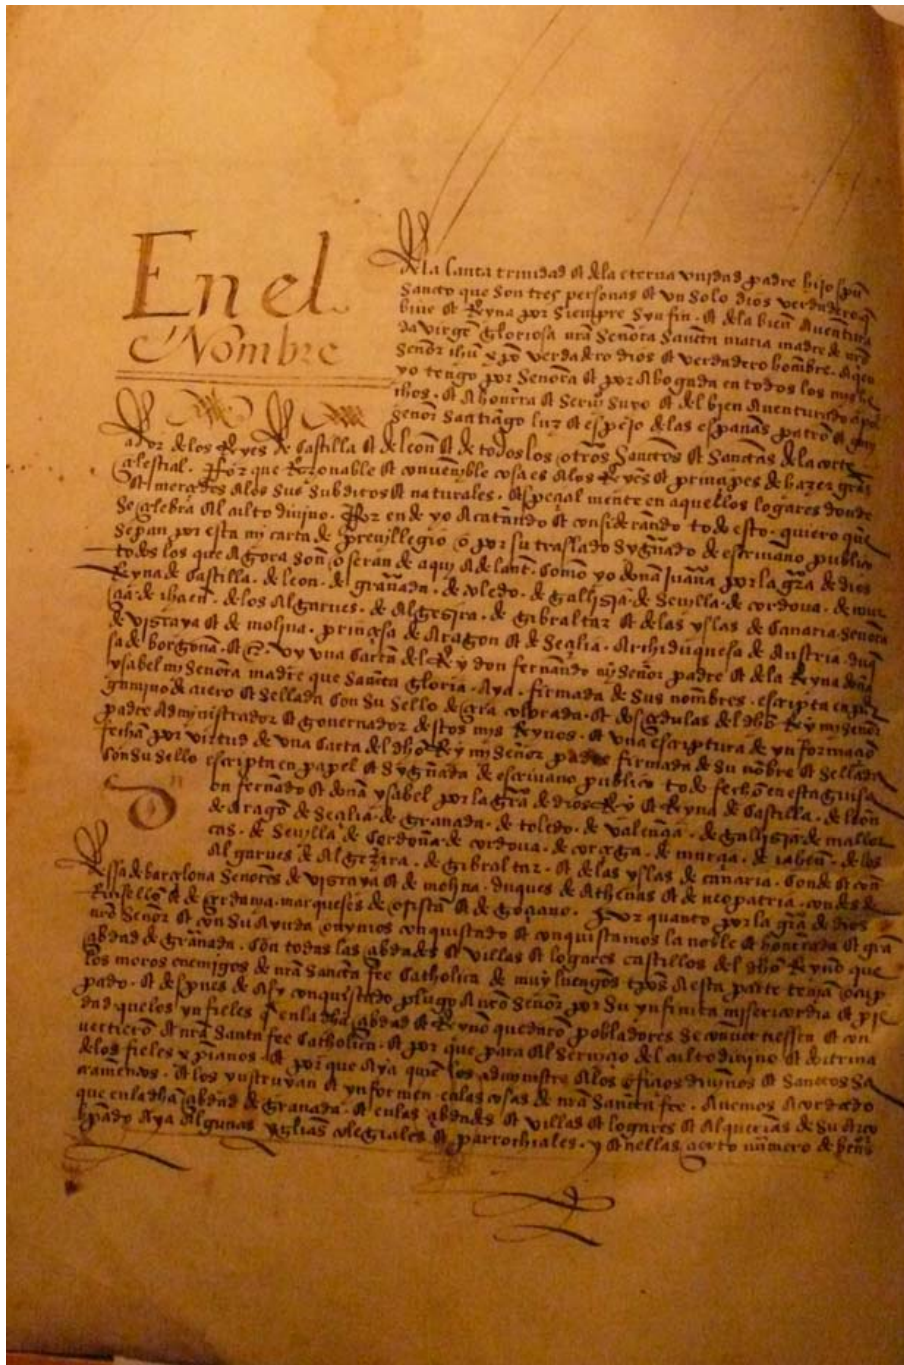 En el
Nombre
de la santa trinidad & de la eterna vnidad padre hijo spũ
Sancto que son tres personas & vn solo dios verdadero q̃
biue & Reyna por siempre syn fin. & de la bien Auentura
da virgẽ gloriosa nr̃a Señora Sancta maria madre de nr̃o
Señor ihũ xp̃o verdadero dios & verdadero hombre. Aqien
yo tengo por Señora & por Abogada en todos los mis fe
chos. & A honrra & seruiº suyo & del bien Auenturado apõ
señor Santiago luz & espejo de las españas patrõ &
ador de los Reyes de Castilla & de leon & de todos los otros Sanctos & Sanctas de la corte
çelestial. Por que Razonable & conuenyble cosa es a los Reyes & principes de hazer grã
& merçedes a los sus subditos & naturales. & espeçial mente en aquellos logares donde
se çelebra el culto diuino. Por en de yo Acatando & considerando todo esto. quiero que
sepan por esta mi carta de preuillegio o por su traslado sygñado de escriuano publico
todos los que Agora son o seran de aqui Adelantẽ. Como yo doña Juana por la grã de dios
Reyna de Castilla. de leon. de granada. de toledo. de gallizia. de Seuilla. de cordoua. de mur
çia. de ihaen. de los Algarues. de Algezira. de gibraltar & de las yslas de Canaria. señora
de vizcaya & de molina. prinçesa de Aragon & de Seçilia. Archiduquesa de Austria duq̃
sa de borgoña. &c̃. vy vna Carta del Rey don fernando my señor padre & de la Reyna doña
ysabel mi Señora madre que Sancta gloria. Aya. firmada de sus nombres. escripta en par
gamino de cuero & sellada con su sello de çera colorada. & dos çedulas del dho Rey mi señor
padre Administrador & gouernador destos mis Reynos. & vna escriptura de ynformaçõ
fecha por virtud de vna Carta del dho Rey mi señor padre firmada de su nõbre & sellada
con su sello escripta en papel & sygñada de escriuano publico todo fecho en esta guisa
Don fernãdo & doña ysabel por la grã de dios Rey & Reyna de Castilla. de leon
de aragõ de Seçilia. de granada. de toledo. de valençia. de gallizia. de mallor
cas. de Seuilla. de Cordoua. de corçega. de murçia. de iahen. de los
Algarues de Algezira. de gibraltar. & de las yslas de canaria. Conde & con
dessa de barçelona Señores de vizcaya & de molina. duques de Athenas & de neopatria. condes de
Rusellõ & de çerdania. marqueses de oristã & de goçiano. Por quanto por la grã de dios
nr̃o Señor & con su Ayuda ouymos conquistado & conquistamos la noble & honrrada & grã
çibdad de granada. Con todas las çibdades & villas & logares castillos del dho Reyno que
los moros enemigos de nr̃a Sancta fee Catholica de muy luengos tpõs A esta parte tenian ocup
pado. & despues de asy conquistado plugo A nr̃o Señor por Su ynfinita misericordia & pie
dad quelos ynfieles q̃ en la dha çibdad & Reyno quedarõ pobladores se conuertiessen & con
uertierõ A nr̃a Santa fee Catholica. & por que para el seruiçio del culto diuino & dotrina
delos fieles xp̃ianos. & por que Aya quien les administre Alos ofiçios diuinos & Sanctos Sa
cramentos. & los ynstruyan & ynformen enlas cosas de nr̃a Sancta fee. Auemos Acordado
que en la dha çibdad de Granada. & en las çibdades & villas & logares & Alquerias de Su Arço
bispado Aya Algunas yglias colegiales & parrochiales. y & nellas çierto número de benefi